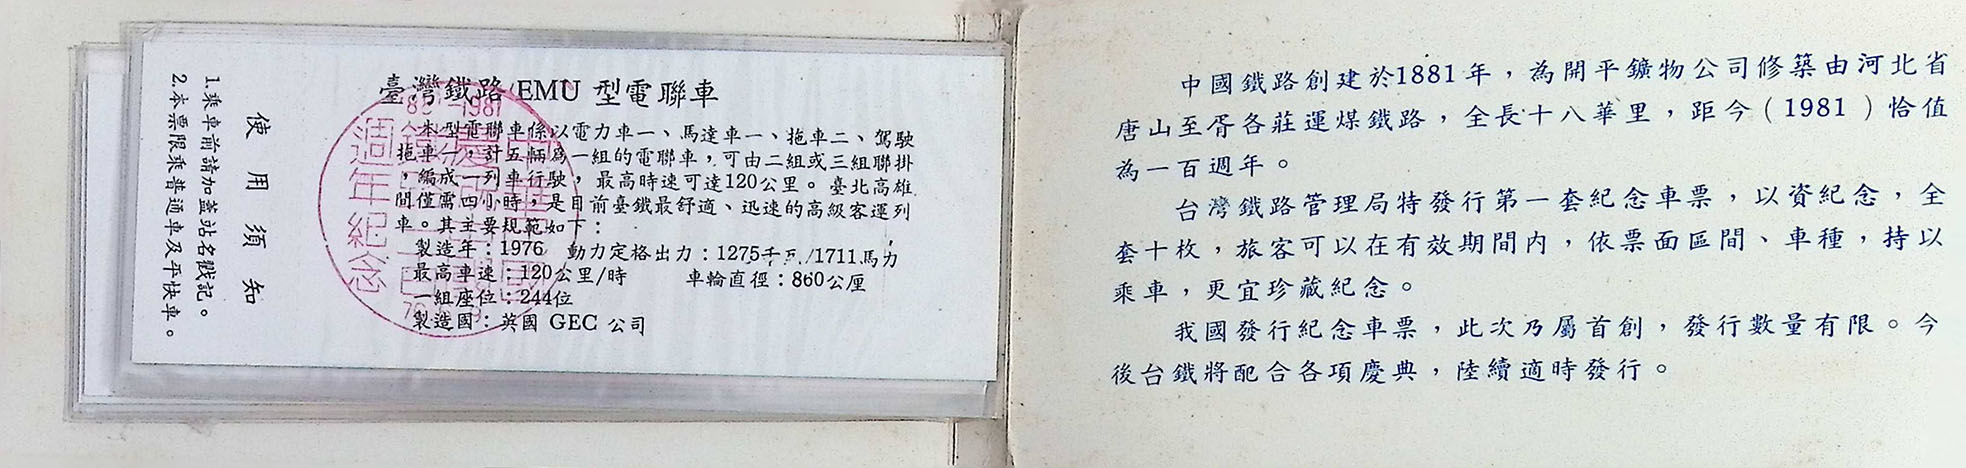 使用須知
1.乘車前請加蓋站名戳記。
2.本票限乘普通車及平快車。
臺灣鐵路 EMU 型電聯車
本型電聯車係以電力車一、馬達車一、拖車二、駕駛
拖車一，計五輛為一組的電聯車，可由二組或三組聯掛
，編成一列車行駛，最高時速可達120公里。臺北高雄
間僅需四小時，是目前臺鐵最舒適、迅速的高級客運列
車。其主要規範如下：
製造年：1976 動力定格出力：1275千瓦/1711馬力
最高車速：120公里/時 車輪直徑：860公厘
一組座位：244位
製造國：英國 GEC 公司
週年紀念
中國鐵路創建於1881年，為開平鑛物公司修築由河北省
唐山至胥各莊運煤鐵路，全長十八華里，距今（1981）恰值
為一百週年。
台灣鐵路管理局特發行第一套紀念車票，以資紀念，全
套十枚，旅客可以在有效期間內，依票面區間、車種，持以
乘車，更宜珍藏紀念。
我國發行紀念車票，此次乃屬首創，發行數量有限。今
後台鐵將配合各項慶典，陸續適時發行。